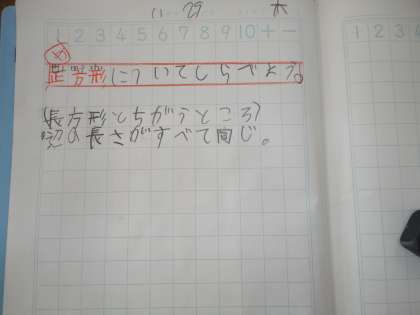 11 29 木
1 2 3 4 5 6 7 8 9 10 + −
め
正方形についてしらべよう。
(長方形とちがうところ)
辺の長さがすべて同じ。
1 2 3